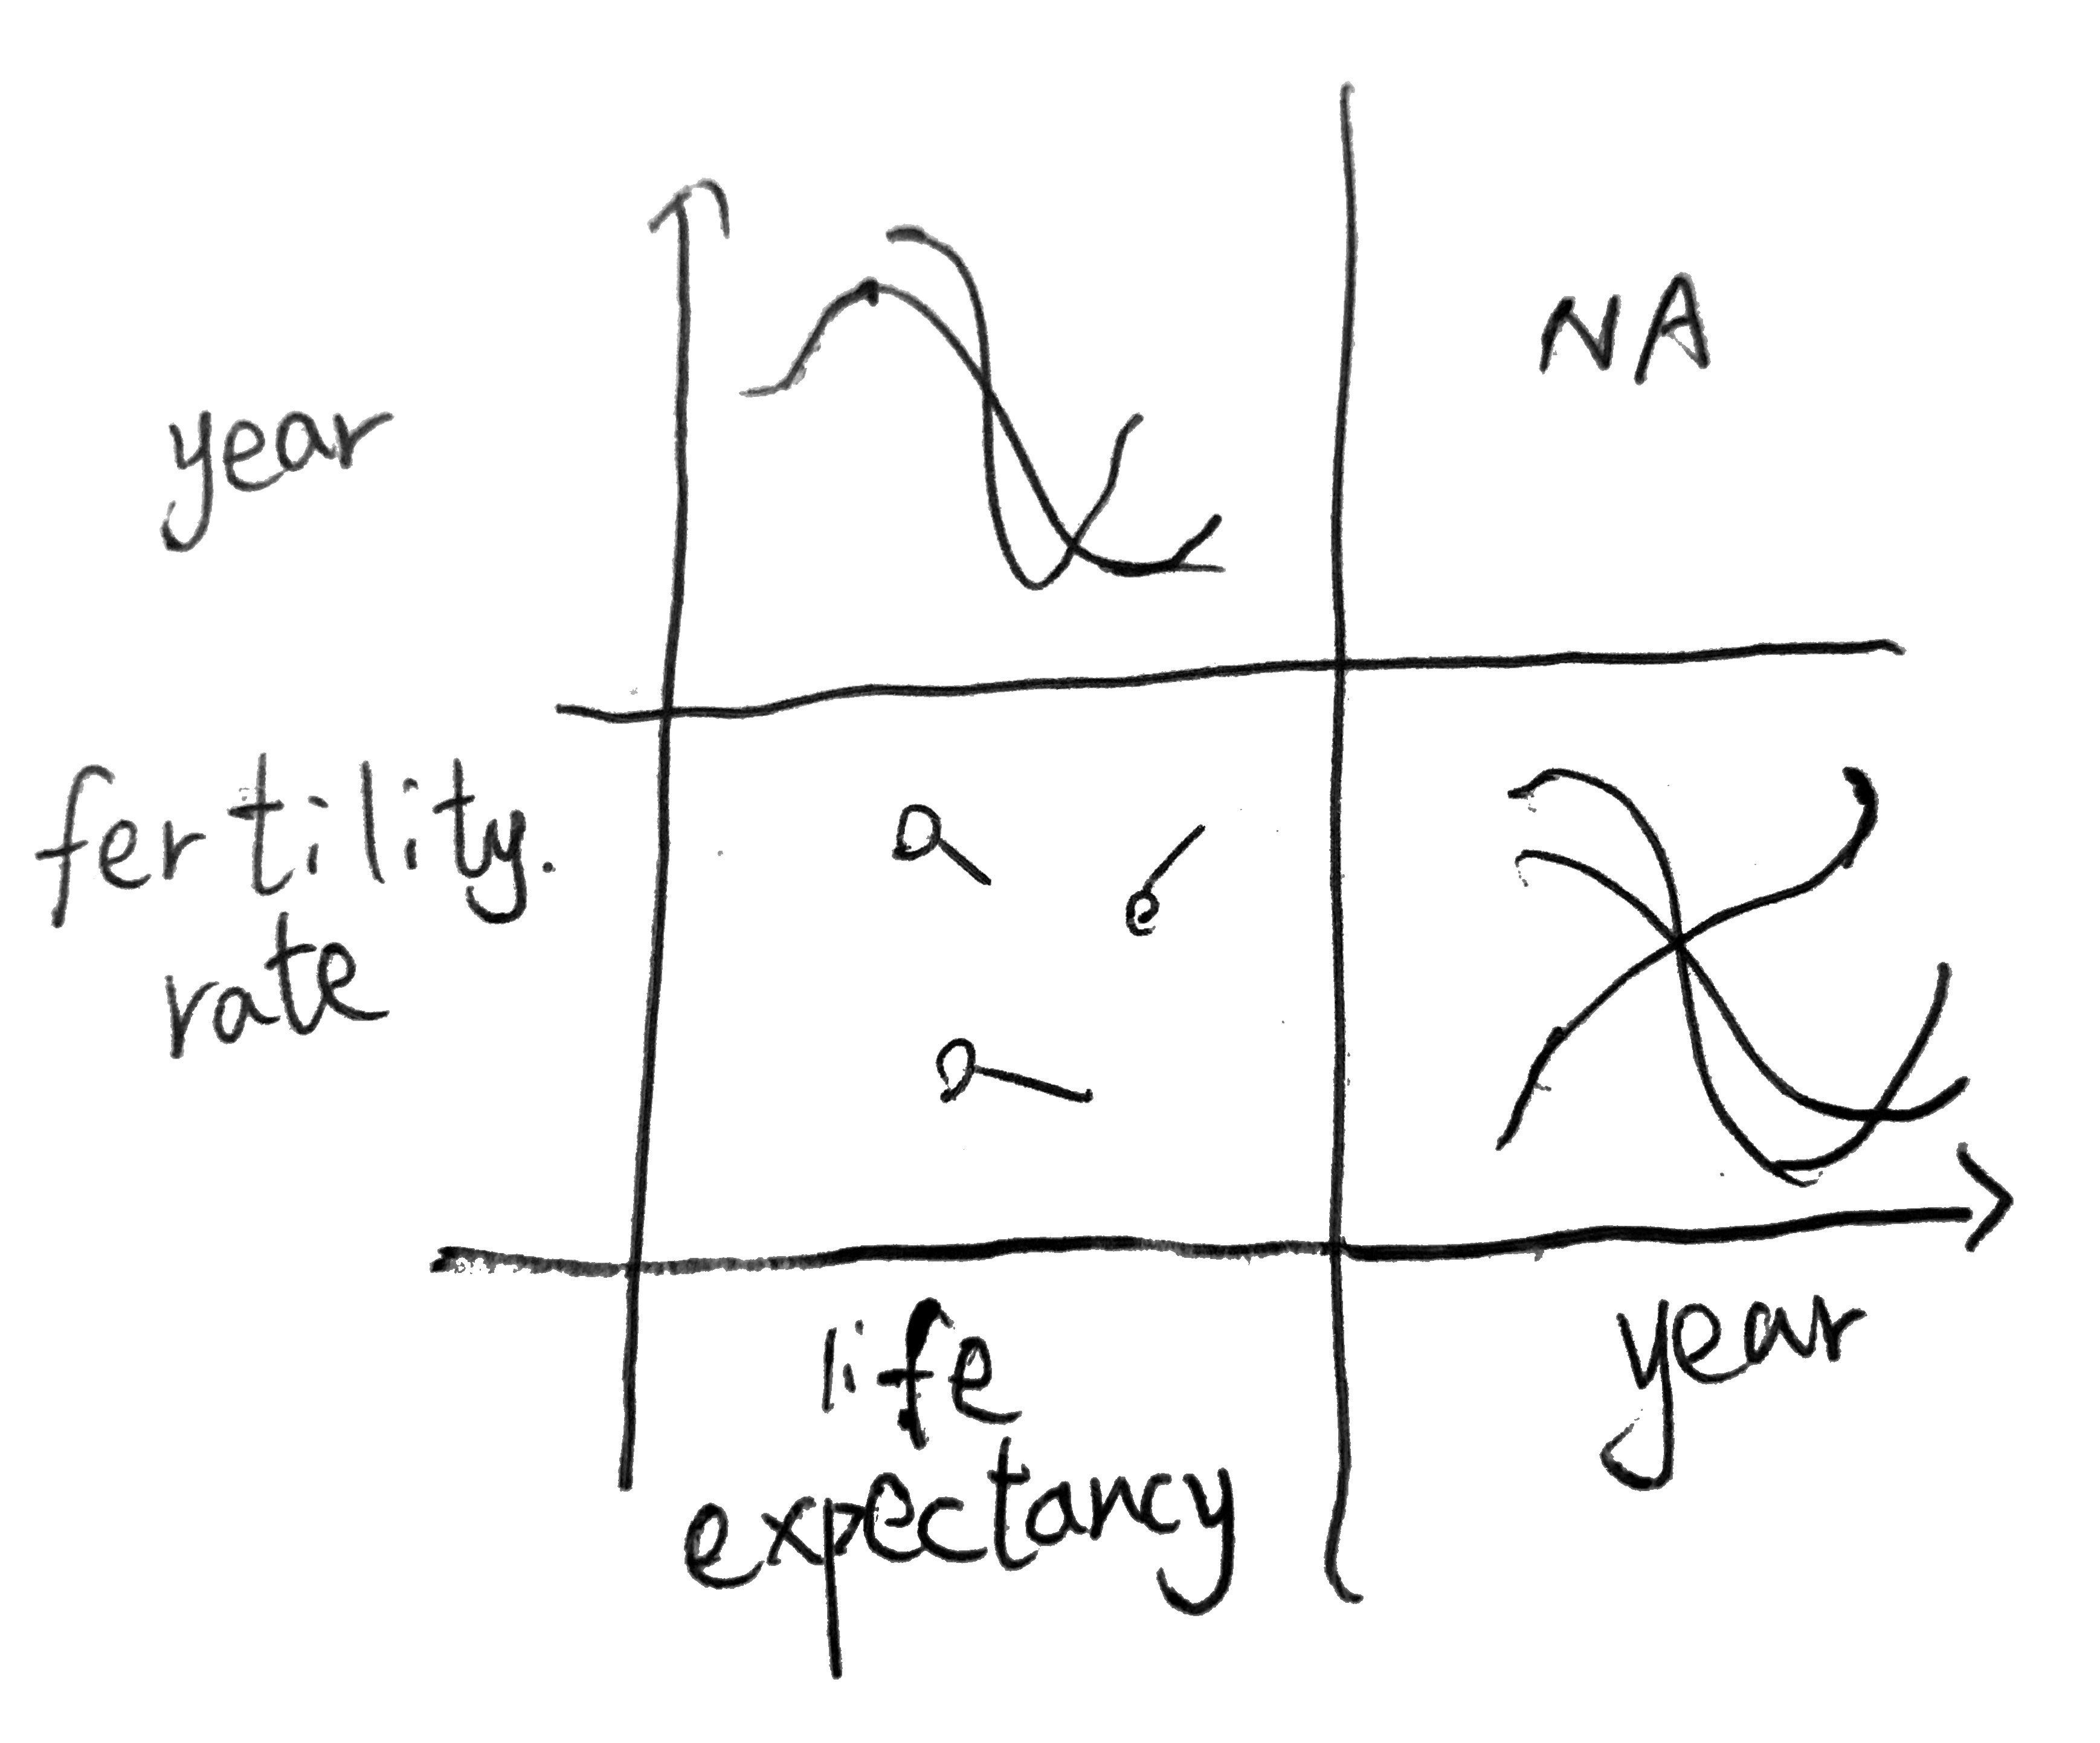 year
NA
fertility.
rate
life
expectancy
year